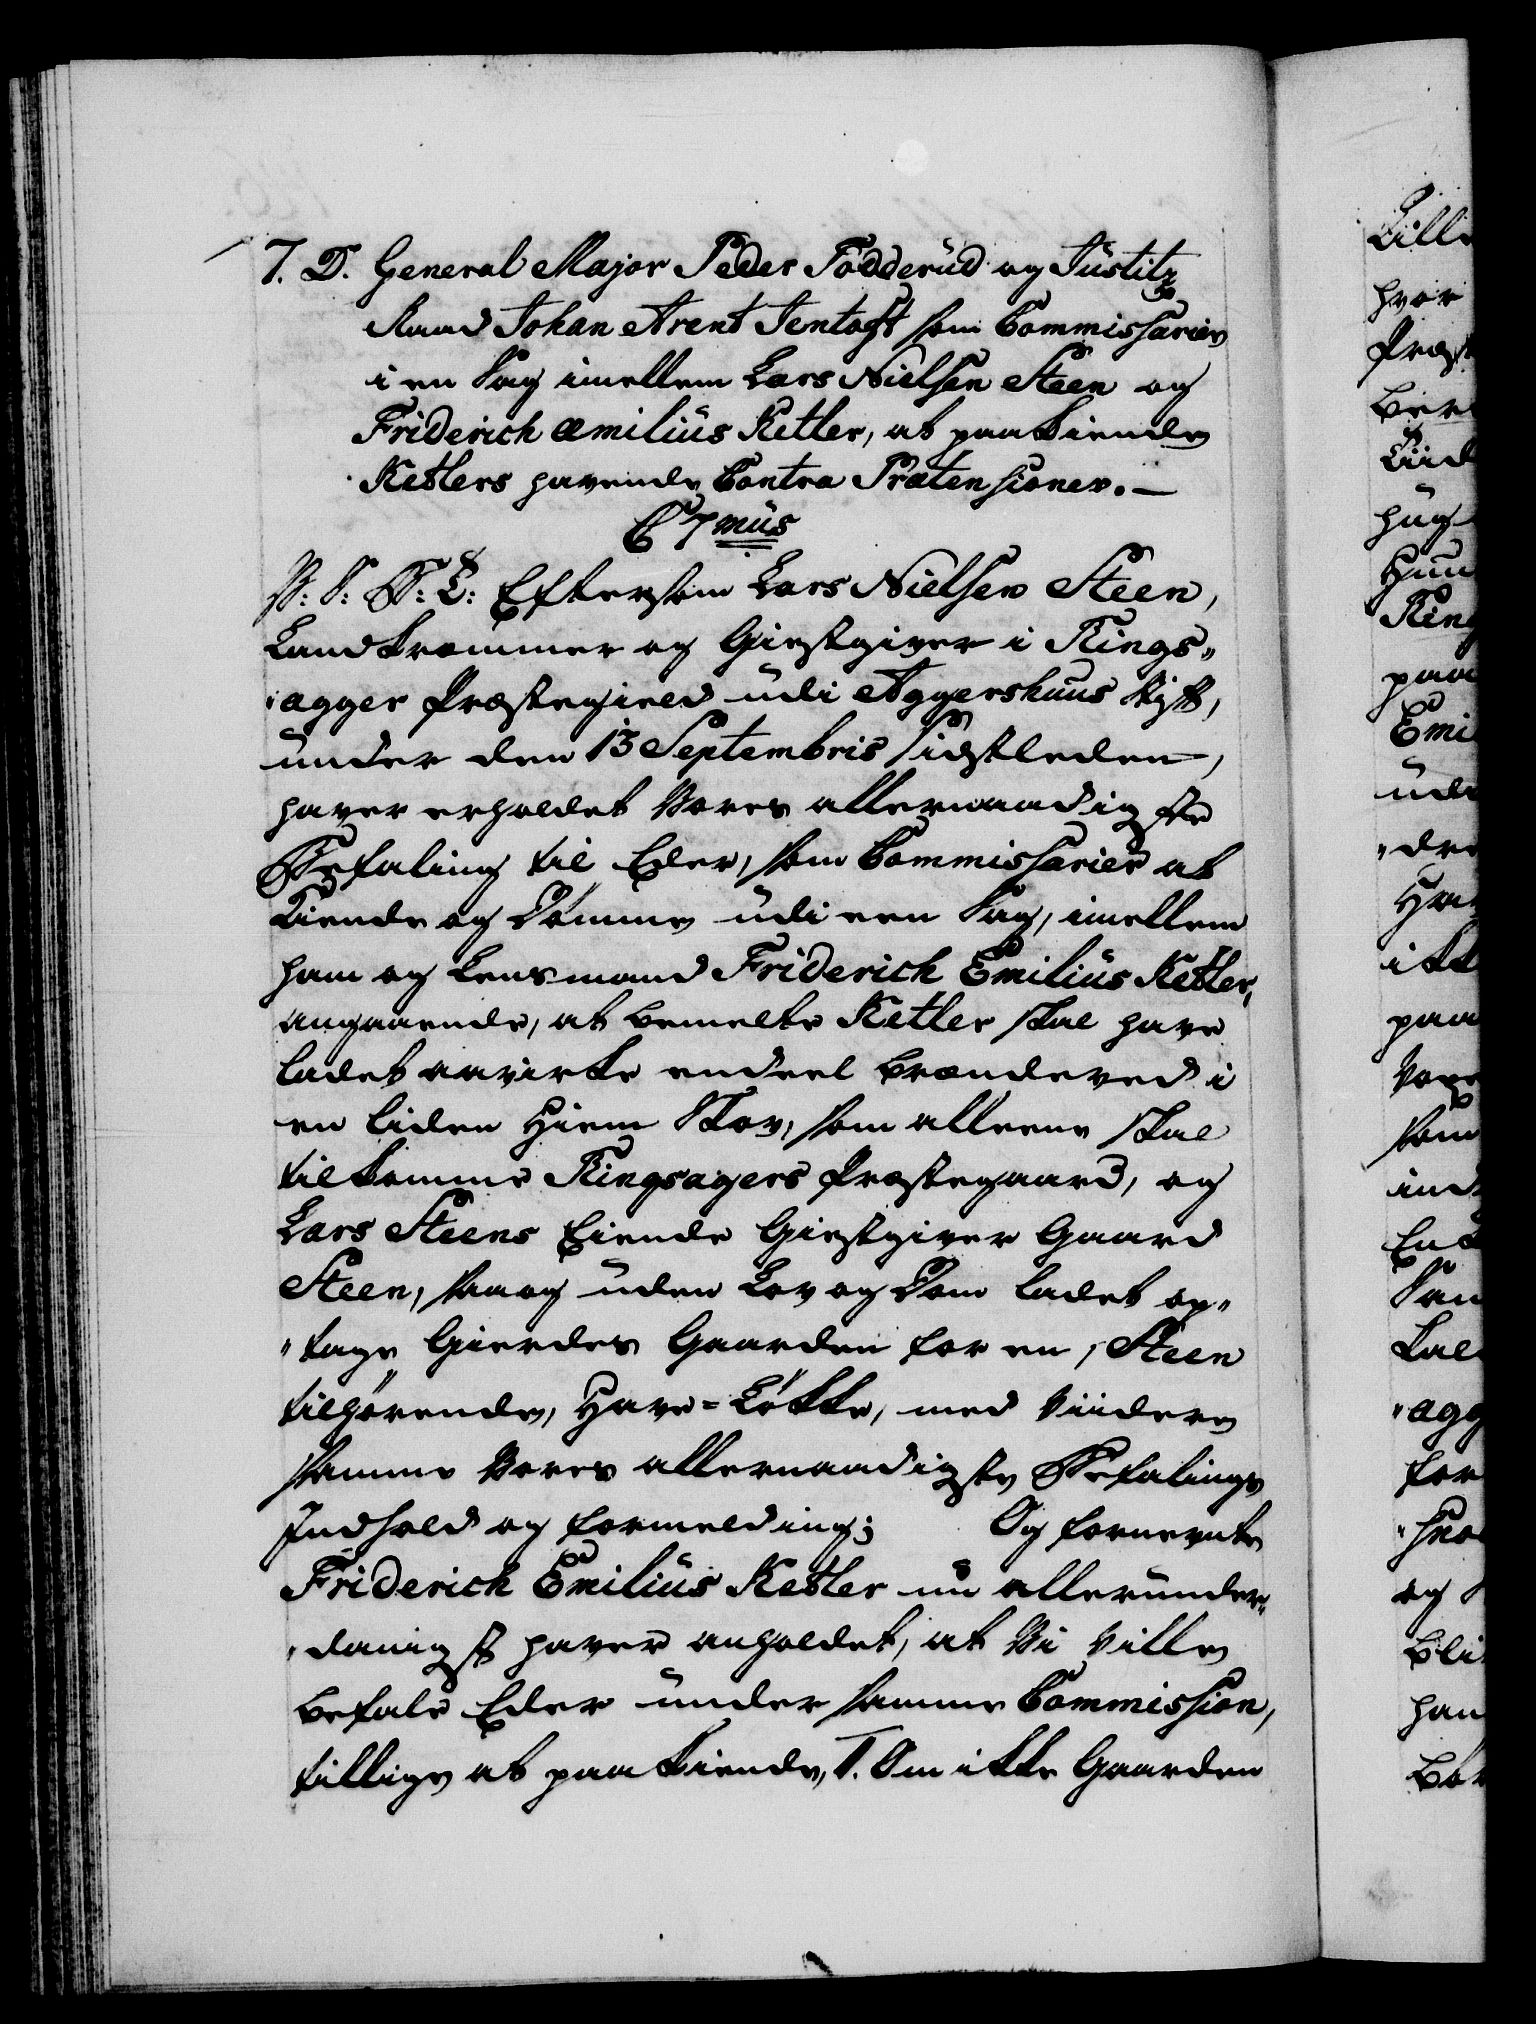 7. D. General Major Peder Todderüd og Jüstitz
Raad Johan Arent Jentoft som Commissarier
i en Sag imellem Lars Nielsen Steen og
Friderich Æmiliüs Ketler, at paakiende
Ketlers havende Contra Prætensioner.—
C 7müs
V: S: G: T: Eftersom Lars Nielsen Steen,
Landkræmmer og Giestgiver i Rings„
„agger Præstegield üdi Aggershuus Stift,
ünder den 13 Septembris sidstleden,
haver erholdet Vores allernaadigste
Befaling til Eder, som Commissarier at
Kiende og Dömme üdi een Sag, imellem
ham og Lensmand Friderich Emiliüs Ketler,
angaaende, at bemelte Ketler skal have
ladet aavirke endeel Brændeved i
en liden Hiem Skov, som alleene skal
tilkomme Ringsagers Præstegaard, og
Lars Steens Eiende Giestgiver Gaard
Steen, saa og üden Lov og Dom ladet op„
„tage Gierdes Gaarden for en, Steen
tilhörende, Have=Lökke, med Viidere
samme Vores allernaadigste Befalings
Indhold og formelding; Og fornevnte
Friderich Emiliüs Ketler nü alleründer„
„danigst haver anholdet, at Vi ville
befale Eder ünder samme Commission,
tillige at paakiende, 1. Om ikke Gaarden